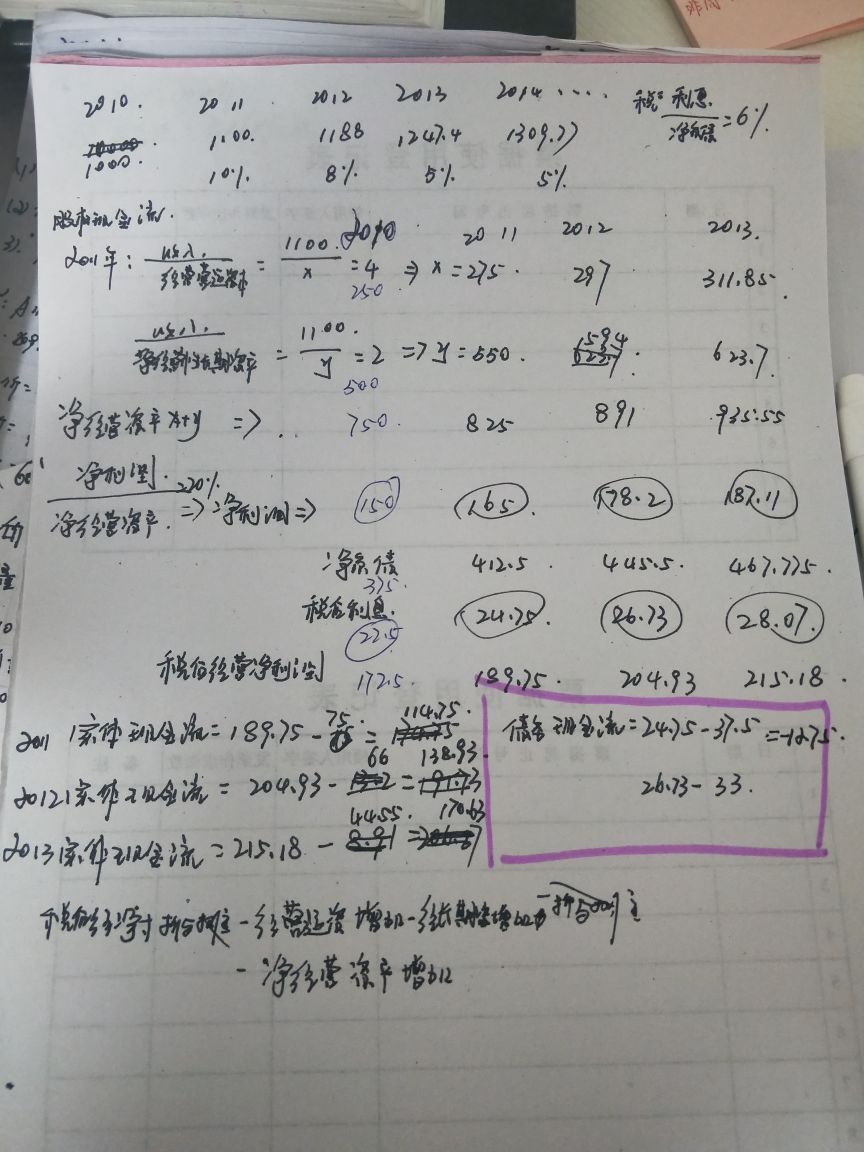 2010. 2011. 2012 2013 2014 ....
税后利息/净负债=6%
1000. 1100. 1188 1247.4 1309.77
10%. 8%. 5%. 5%.
股权现金流.
2010 2011 2012 2013.
2011年: 收入/经营营运资本 = 1100/x = 4 => x = 275. 297 311.85.
250
收入/净经营性长期资产 = 1100./y = 2 => y = 550. 594 623.7
500
净经营资产 x+y => 750. 825 891 935.55
净利润/净经营资产 =20% => 净利润 => 150 165. 178.2 187.11
净负债 412.5 445.5. 467.775.
375
税后利息. 24.75. 26.73 28.07.
22.5
税后经营净利润 172.5 189.75. 204.93 215.18.
2011 实体现金流 = 189.75 - 75 = 114.75.
债务现金流 = 24.75 - 37.5 = -12.75.
2012 实体现金流 = 204.93 - 66 = 138.93.
26.73 - 33.
2013 实体现金流 = 215.18 - 44.55. = 170.63
税后经净 折与摊 - 经营运资增加 - 经长期资增加
- 净经营资产增加